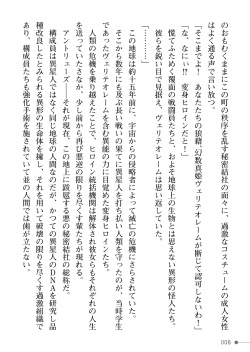 のをもむくままにこの町の秩序を乱す秘密結社の面々に、過激なコスチュームの成人女性
はよく通る声で言い放つ。
「そこまでよ！　あなたたちの狼藉、この真数姫ヴェリテオレームが断じて認可しないわ！」
「な、なにぃ!?　変身ヒロインだと！」
慌てふためく覆面の戦闘員たちと、およそ地球上の生物とは思えない異形の怪人たち。
彼らを鋭い目で見据え、ヴェリテオレームは思い返していた。
「…………」
この地球は約十五年前に、宇宙からの侵略者によって滅亡の危機にさらされていた。
そこから数年に及ぶ激しい戦いの末に異星人を打ち払い人類を守ったのが、当時学生
であったヴェリテオレームを含む異能の力に目覚めた変身ヒロインたち。
人類の危機を乗り越えたことで、ヒロイン統括機関は解散され彼女らもそれぞれの人生
を送っていたさなか、少し前から再び悪の限りを尽くす輩たちが現る。
アントリューズ――それが現在、この地上に跋扈する悪の秘密結社の総称だ。
構成員は異星人ではなく同じ地球の人間なのだが、かつての異星人のＤＮＡを研究し品
種改良したとみられる異形の生命体を操り、それを利用して破壊の限りを尽くす過激組織で
あり、構成員たちも強化手術を施されていて並の人間では歯が立たない。
008